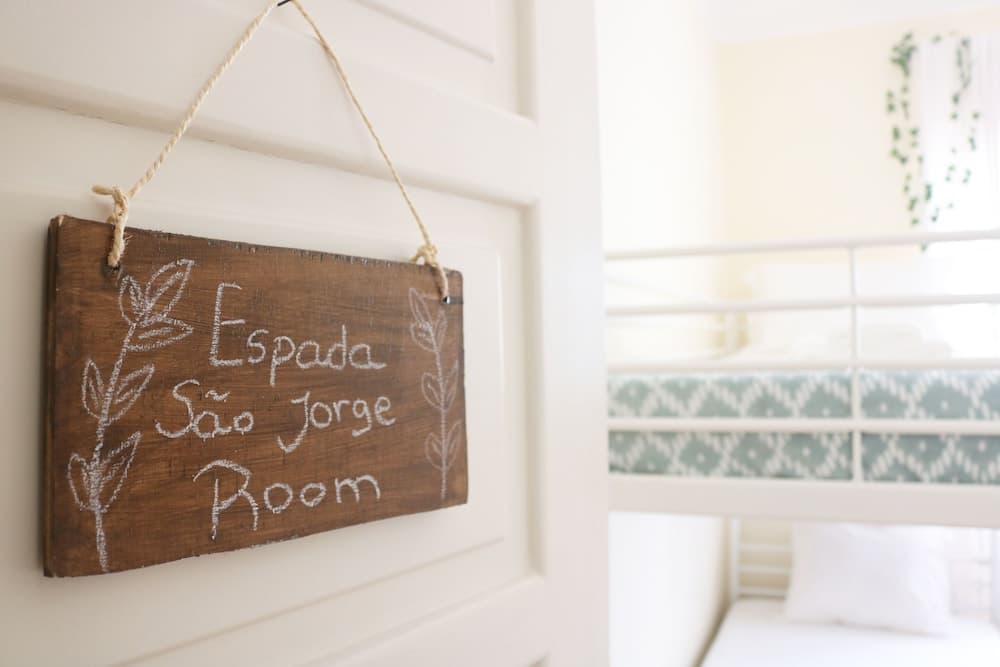 Espada
São Jorge
Room